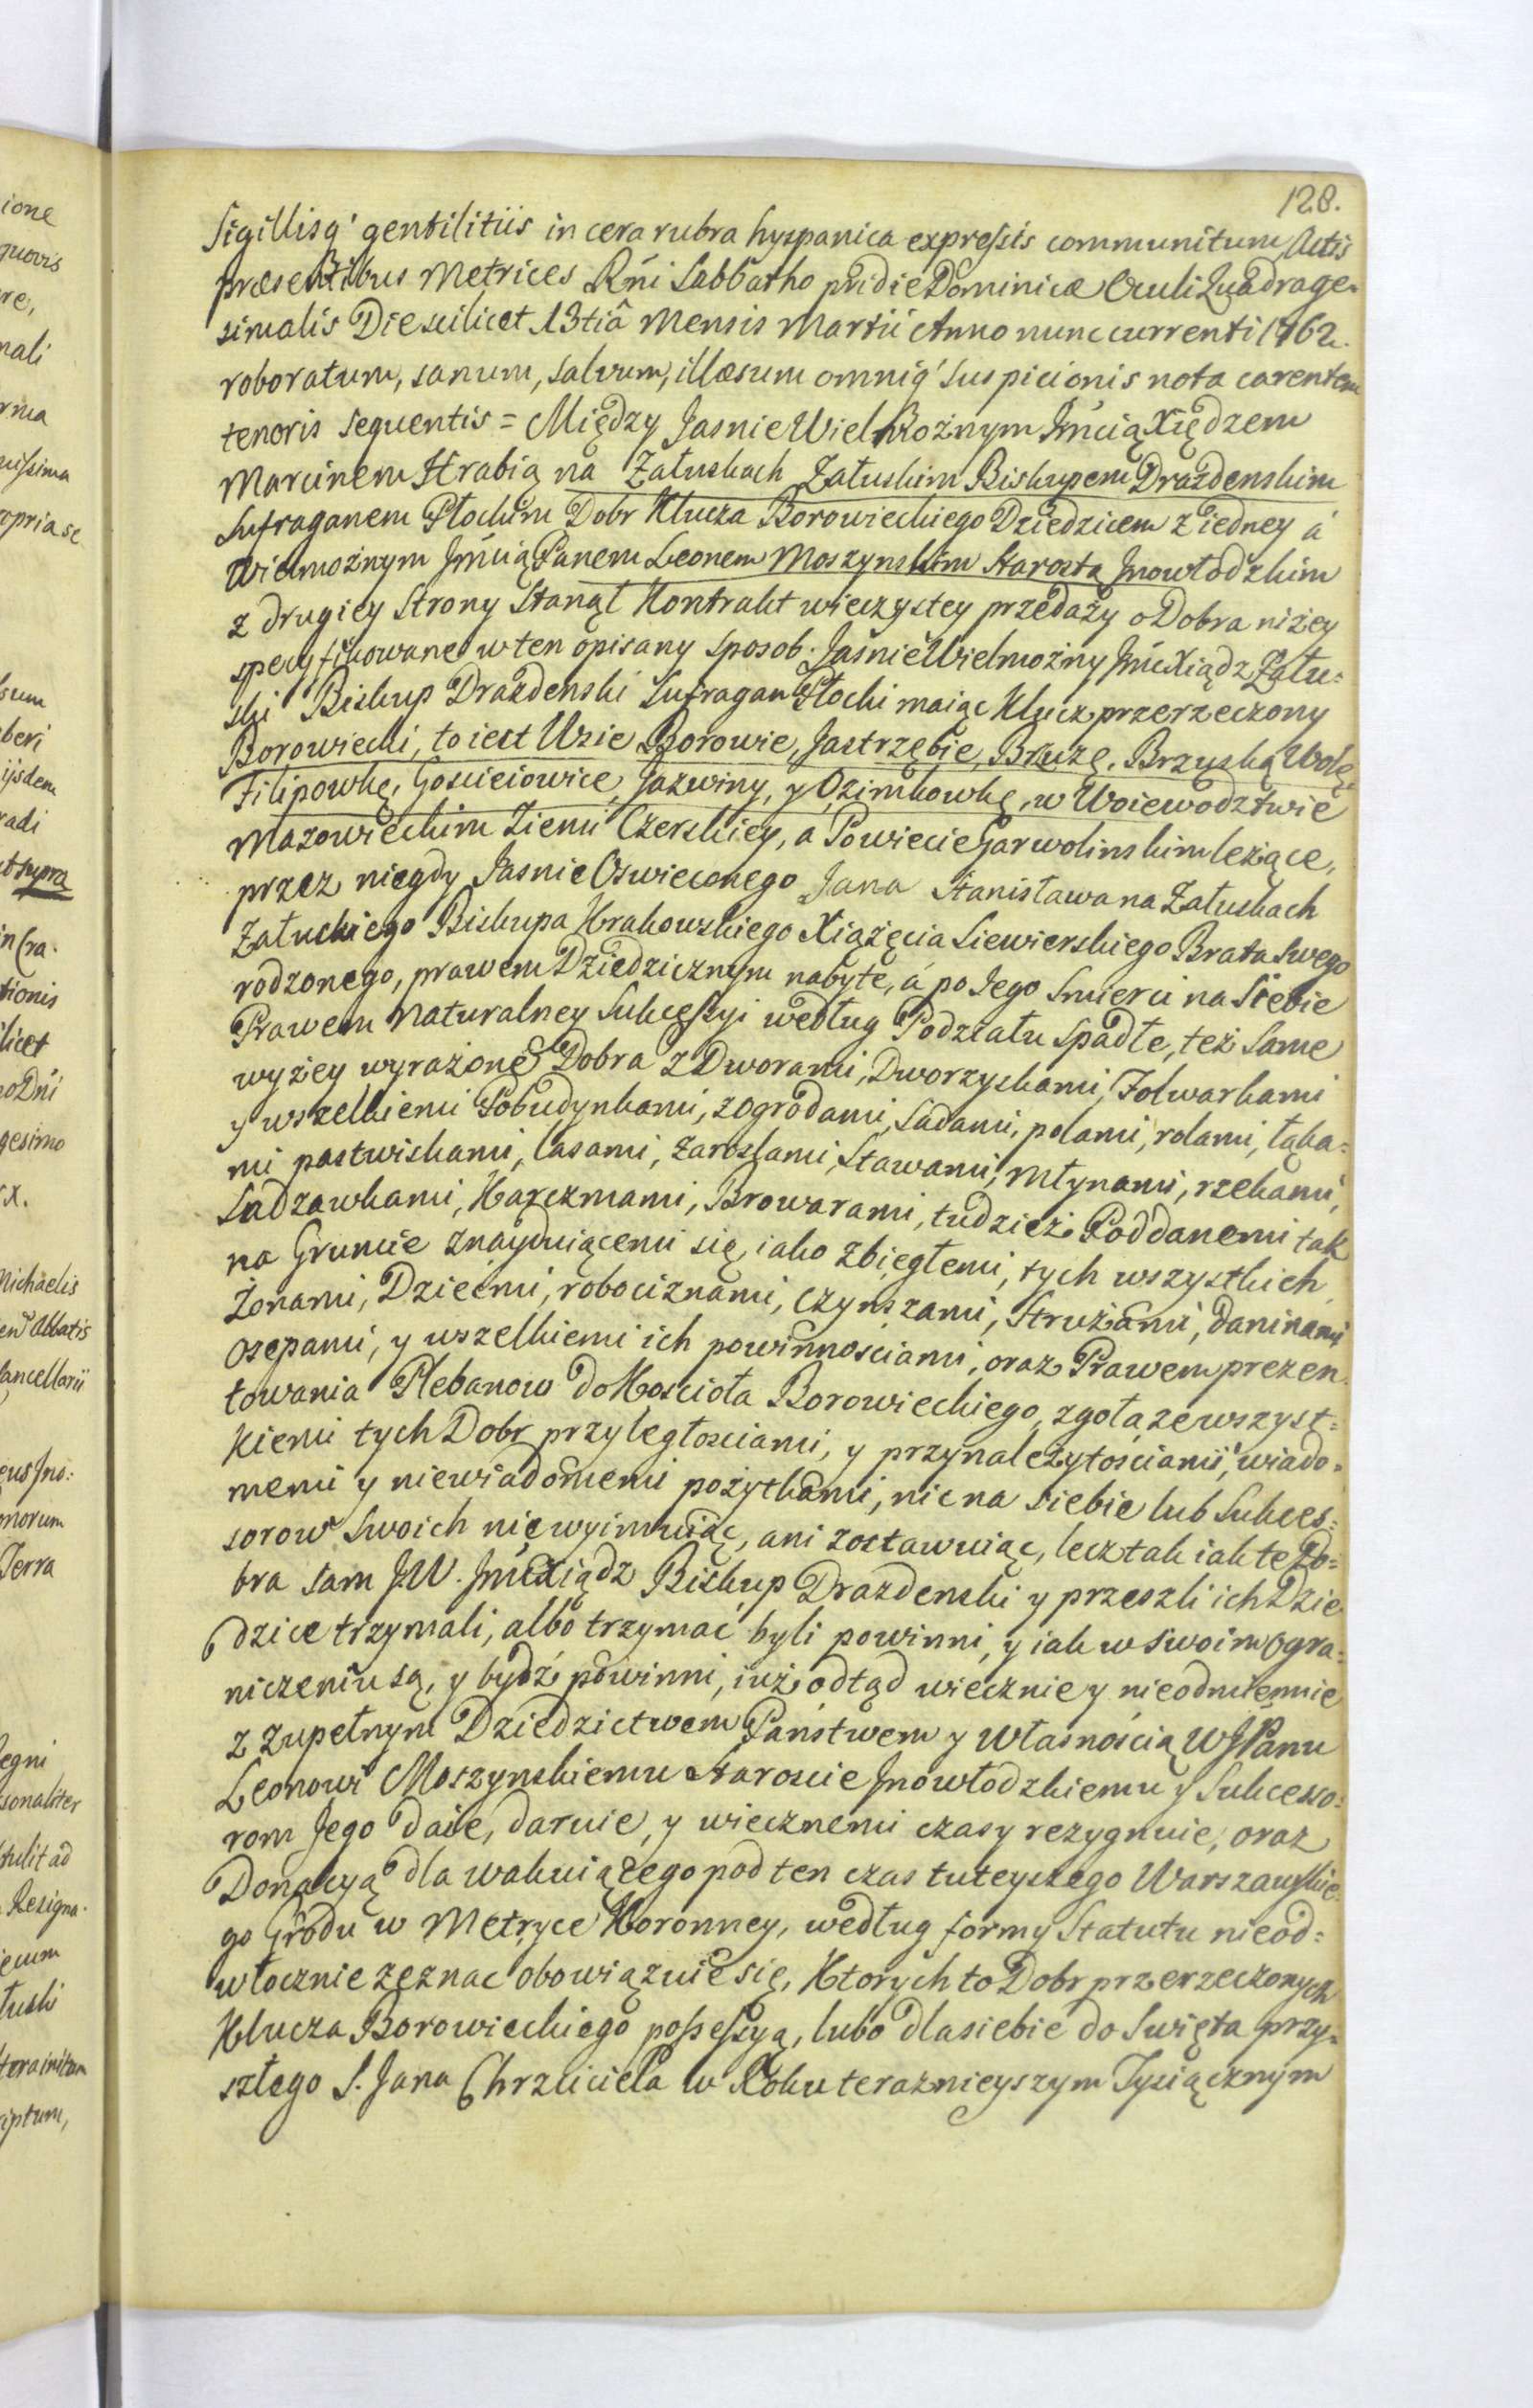 128.
Sigillisq' gentilitiis in cera rubra hyspanica expressis communitum Actis
præsentibus Metrices Rńi Sabbatho pridie Dominicæ Oculi Quadrage=
simalis Die scilicet 13tiâ Mensis Martii Anno nunc currenti 1762.
roboratum, sanum, salvum, illæsum omniq' suspicionis nota carentem
tenoris sequentis = Między Jasnie Wielmożnym Jmcią Xiędzem
Marcinem Hrabią na Załuskach Załuskim Biskupem Drazdenskim
Sufraganem Płockim Dobr Klucza Borowieckiego Dziedzicem z iedney á
Wielmożnym Jmcią Panem Leonem Moszynskim Starostą Jnowłodzkim
z drugiey Strony Stanął Kontrakt wieczystey przedaży o Dobra niżey
specyfikowane w ten opisany sposob. Jaśnie Wielmożny Jmć Xiądz Zału=
ski Biskup Drazdenski Sufragan Płocki maiąc Klucz przerzeczony
Borowiecki, to iest Wsie Borowie, Jastrzębie, Bruzę, Brzuską Wolę
Filipowkę, Gościeiowice, Jazwiny, y Ozimkowkę, w Woiewodztwie
Mazowieckim Ziemi Czerskiey, a Powiecie Garwolinskim leżące,
przez niegdy Jasnie Oswieconego Jana Stanisława na Załuskach
Załuskiego Biskupa Krakowskiego Xiążęcia Siewierskiego Brata swego
rodzonego, prawem Dziedzicznym nabyte, á po Jego Smierci na Siebie
Prawem naturalney Sukcessyi według Podziału spadłe, też same
wyżey wyrażone Dobra z Dworami, Dworzyskami, Folwarkami
y wszelkiemi Pobudynkami, z ogrodami, Sadami, polami, rolami, łąka=
mi pastwiskami, lasami, zaroslami, Stawami, Młynami, rzekami,
Sadzawkami, Karczmami, Browarami, tudzież Poddanemi tak
na Gruncie znayduiącemi się, iako zbiegłemi, tych wszystkich
Żonami, Dziećmi, robociznami, czynszami, Stróżami, daninami
osepami, y wszelkiemi ich powinnosciami, oraz Prawem prezen
towania Plebanow do Kosciola Borowieckiego, zgoła ze wszyst=
kiemi tych Dobr przyległosciami, y przynależytościami, wiado=
memi y niewiadomemi pożytkami, nic na siebie lub Sukces=
sorow Swoich nie wyimuiąc, ani zostawuiąc, lecz tak iak te Do=
bra sam J.W. Jmć Xiądz Biskup Drazdenski y przeszli ich Dzie
dzice trzymali, albo trzymać byli powinni, y iak w swoim ogra=
niczeniu są, y bydź powinni, iuż odtąd wiecznie y nieodmiennie
z zupełnym Dziedzictwem Państwem y Własnością WJPanu
Leonowi Moszynskiemu Staroscie Jnowłodzkiemu y Sukcesso=
rom Jego daie, daruie, y wiecznemi czasy rezygnuie, oraz
Donacyą dla wakuiącego pod ten czas tuteyszego Warszawskie
go Grodu w Metryce Koronney, według formy Statutu nieod=
włocznie zeznac obowiązuie się, Ktorych to Dobr przerzeczonych
Klucza Borowieckiego possessyą, lubo dla siebie do Swięta przy=
szłego S. Jana Chrzciciela w Roku teraznieyszym Tysiącznym